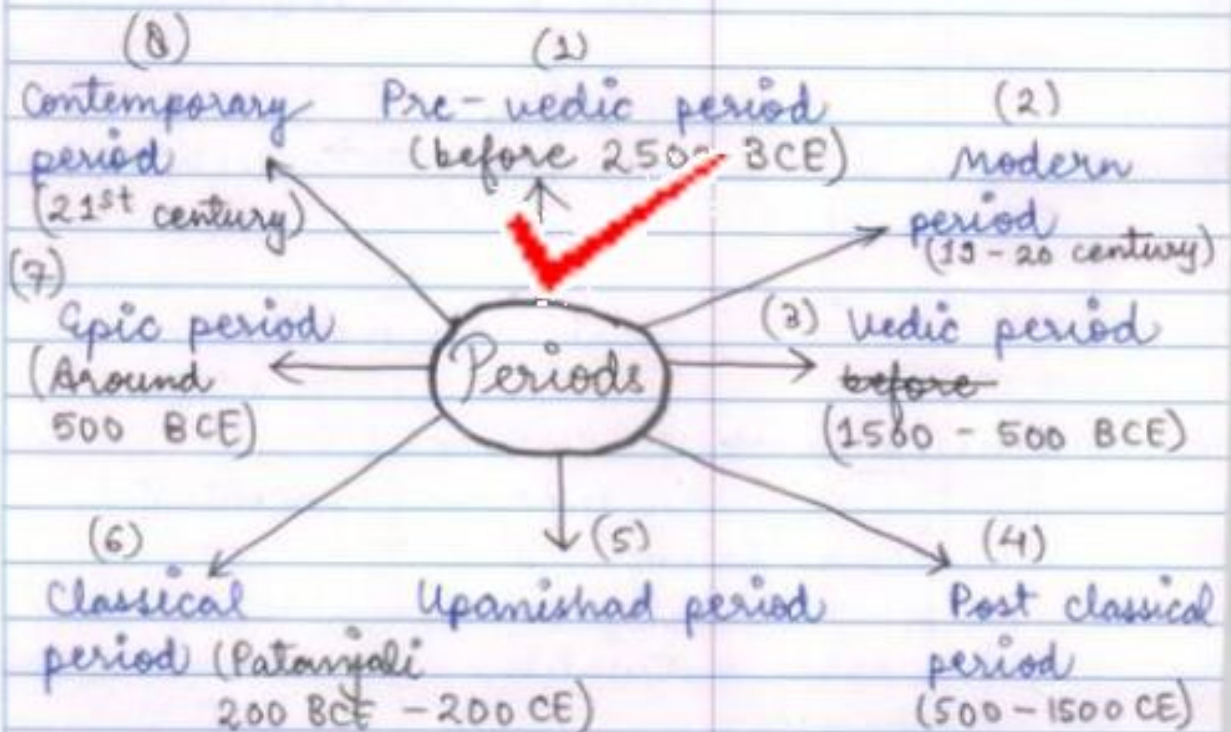 (8)
Contemporary
period
(21st century)
(1)
Pre-vedic period
(before 2500 BCE)
(2)
Modern
period
(19-20 century)
(7)
Epic period
(Around
500 BCE)
Periods
(3) Vedic period
before
(1500 - 500 BCE)
(6)
Classical
period (Patanjali
200 BCE - 200 CE)
(5)
Upanishad period
(4)
Post classical
period
(500-1500 CE)